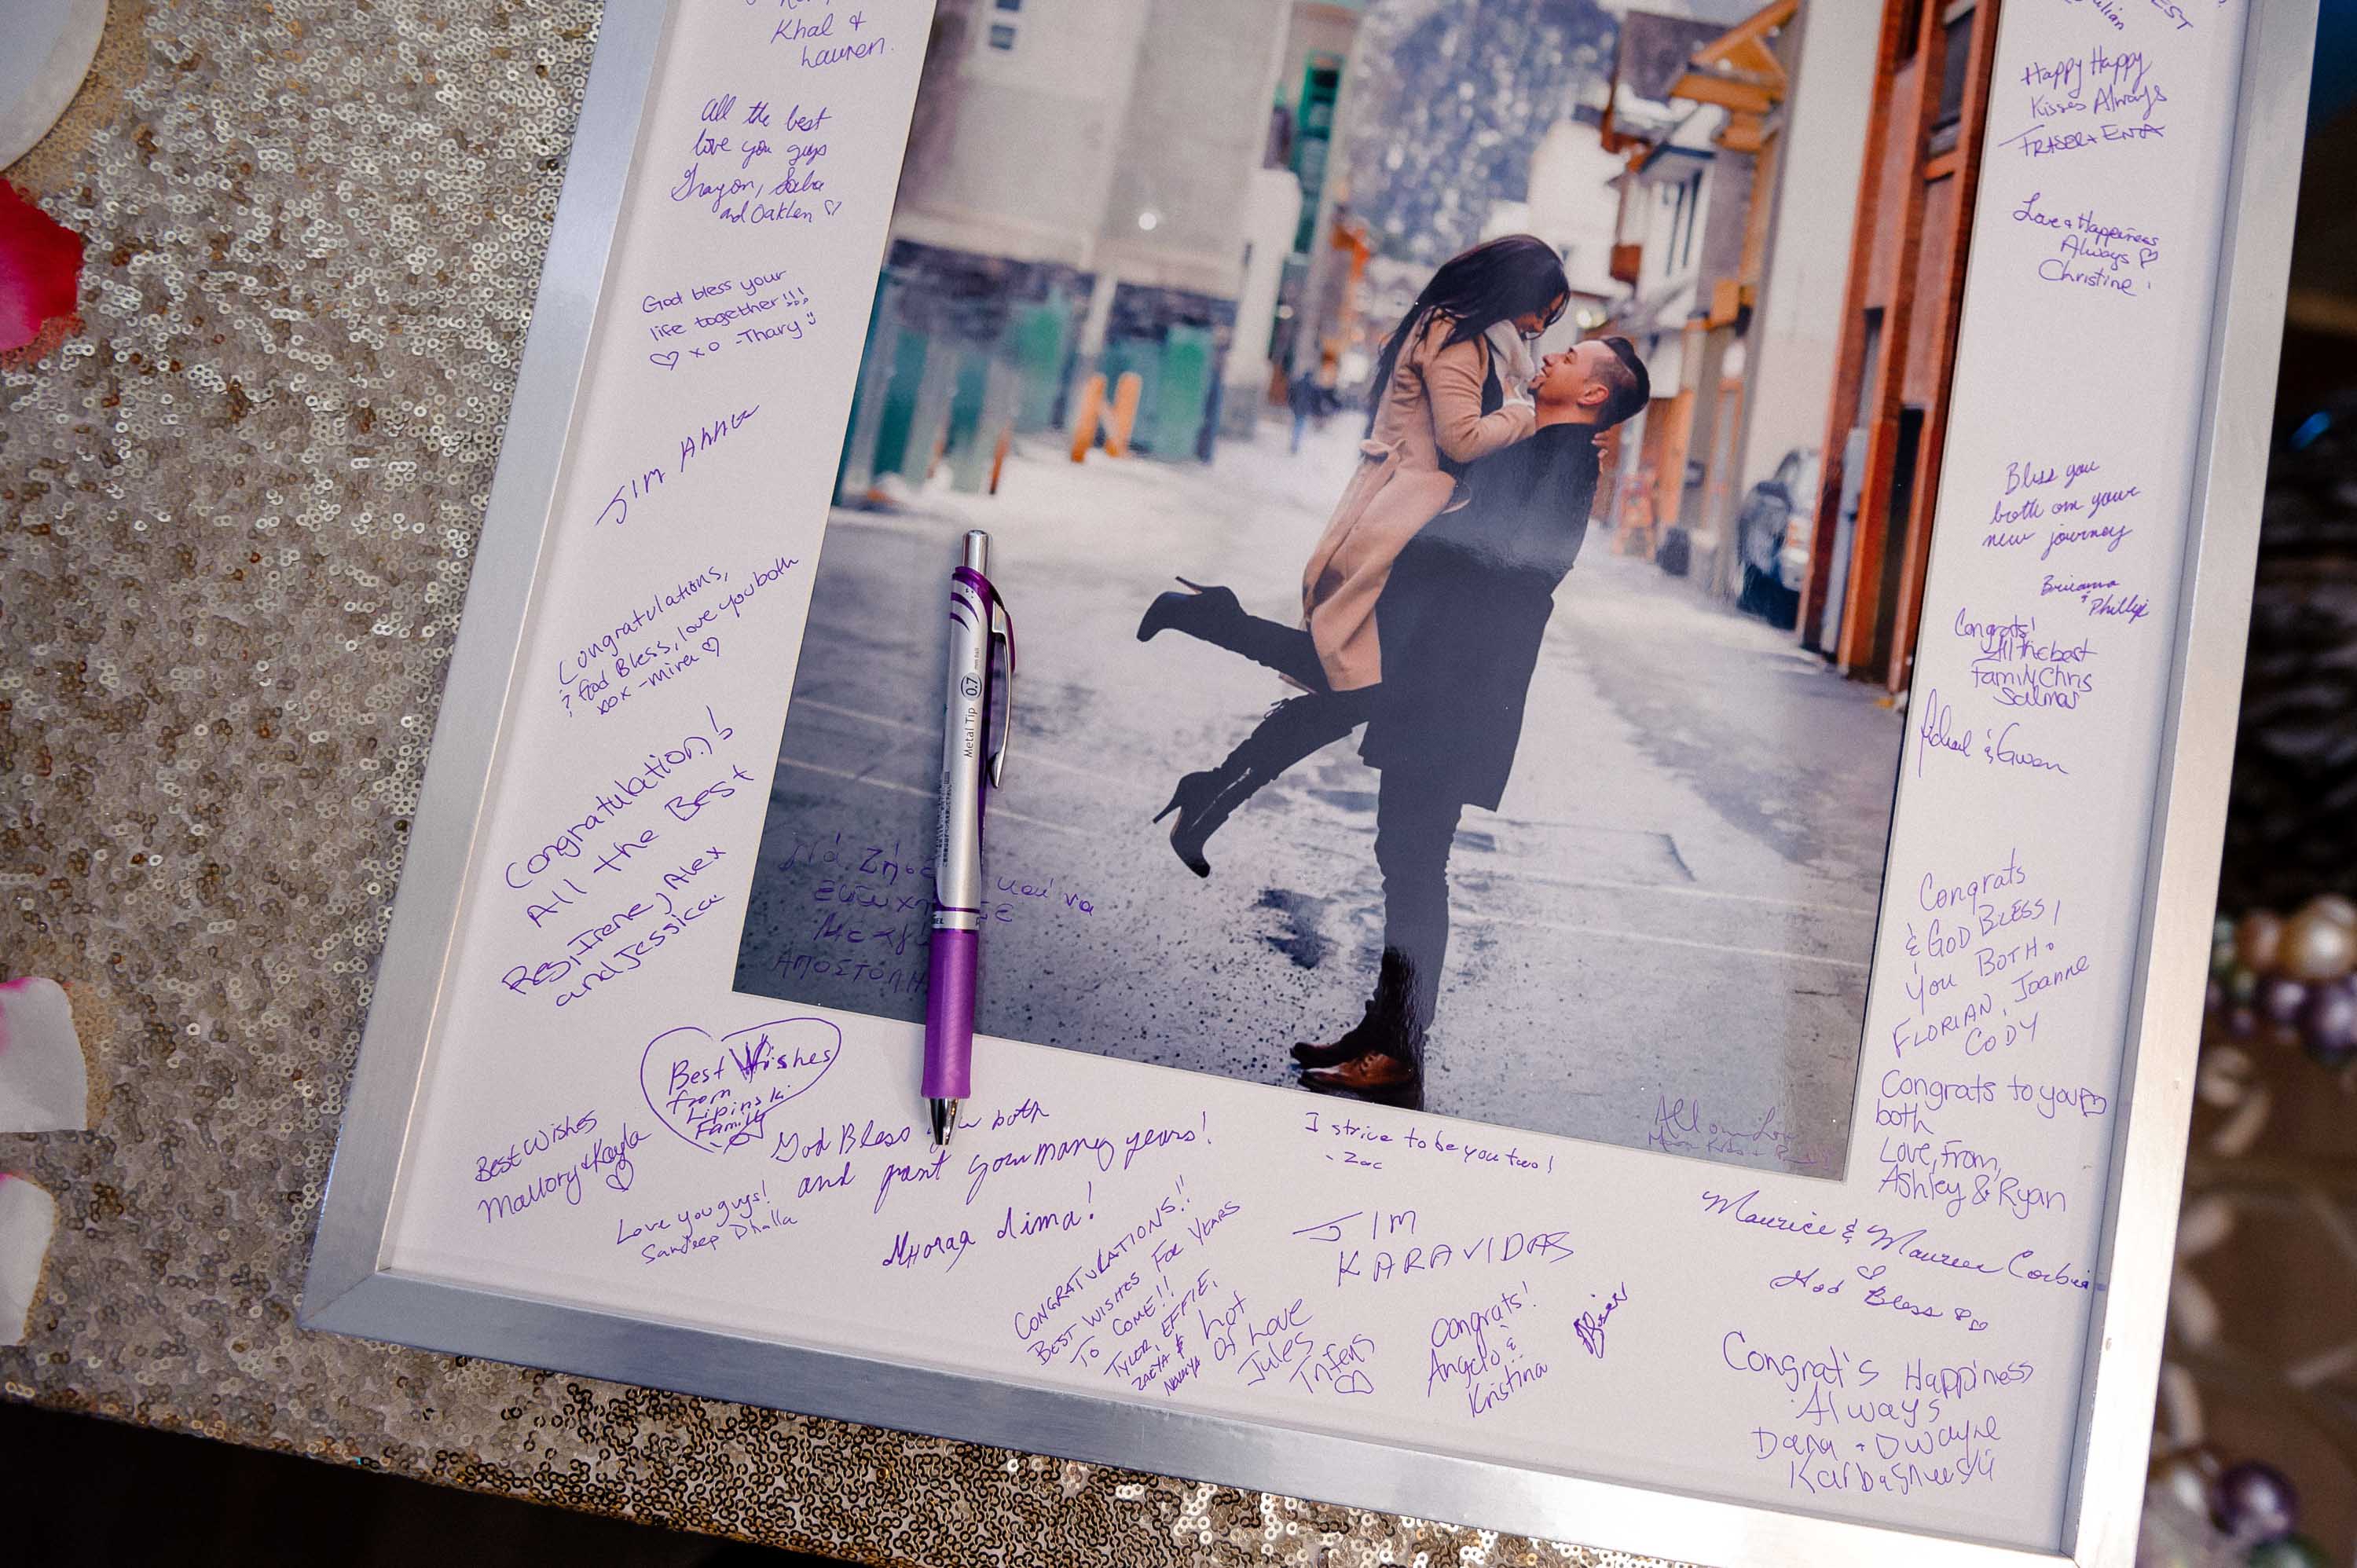 Khal &
Lauren.
All the best
love you guys
Grayson, Saba
and Oaklen ♡
God bless your
life together!!!
♡ xo -Thary
JIM ANNA
Congratulations,
& God Bless, love you both
xox -mira ♡
Congratulation!
All the Best
Res, Irene, Alex
and Jessica
Best Wishes
from
Lipinski
Family
Best Wishes
Mallory & Kayla
♡
Love you guys!
Sandeep Dhalla
God Bless you both
and grant you many years!
Mnoraja Lima!
CONGRATULATIONS!!
BEST WISHES FOR YEARS
TO COME!!
TYLER, EFFIE,
ZAEYA &
Lot
of Love
Jules
♡
I strive to be you two!
- Zac
JIM
KARAVIDAS
Congrats!
Angelo &
Kristina
Νά
καί να
ΑΠΟΣΤΟΛΗ
Metal Tip 0.7
All our Love
Julian
Happy Happy
Kisses Always
FRASER & ENA
Love & Happiness
Always ♡
Christine
Bless you
both on your
new journey
Brianna
&
Phillip
Congrats!
All the best
Family Chris
Salmas
Michael & Gwen
Congrats
& GOD BLESS,
YOU BOTH.
FLORIAN, Joanne
CODY
Congrats to you ♡
both
Love, From,
Ashley & Ryan
Maurice & Maureen
♡
God Bless ♡♡
Congrat's Happiness
Always
Dana + Dwayne